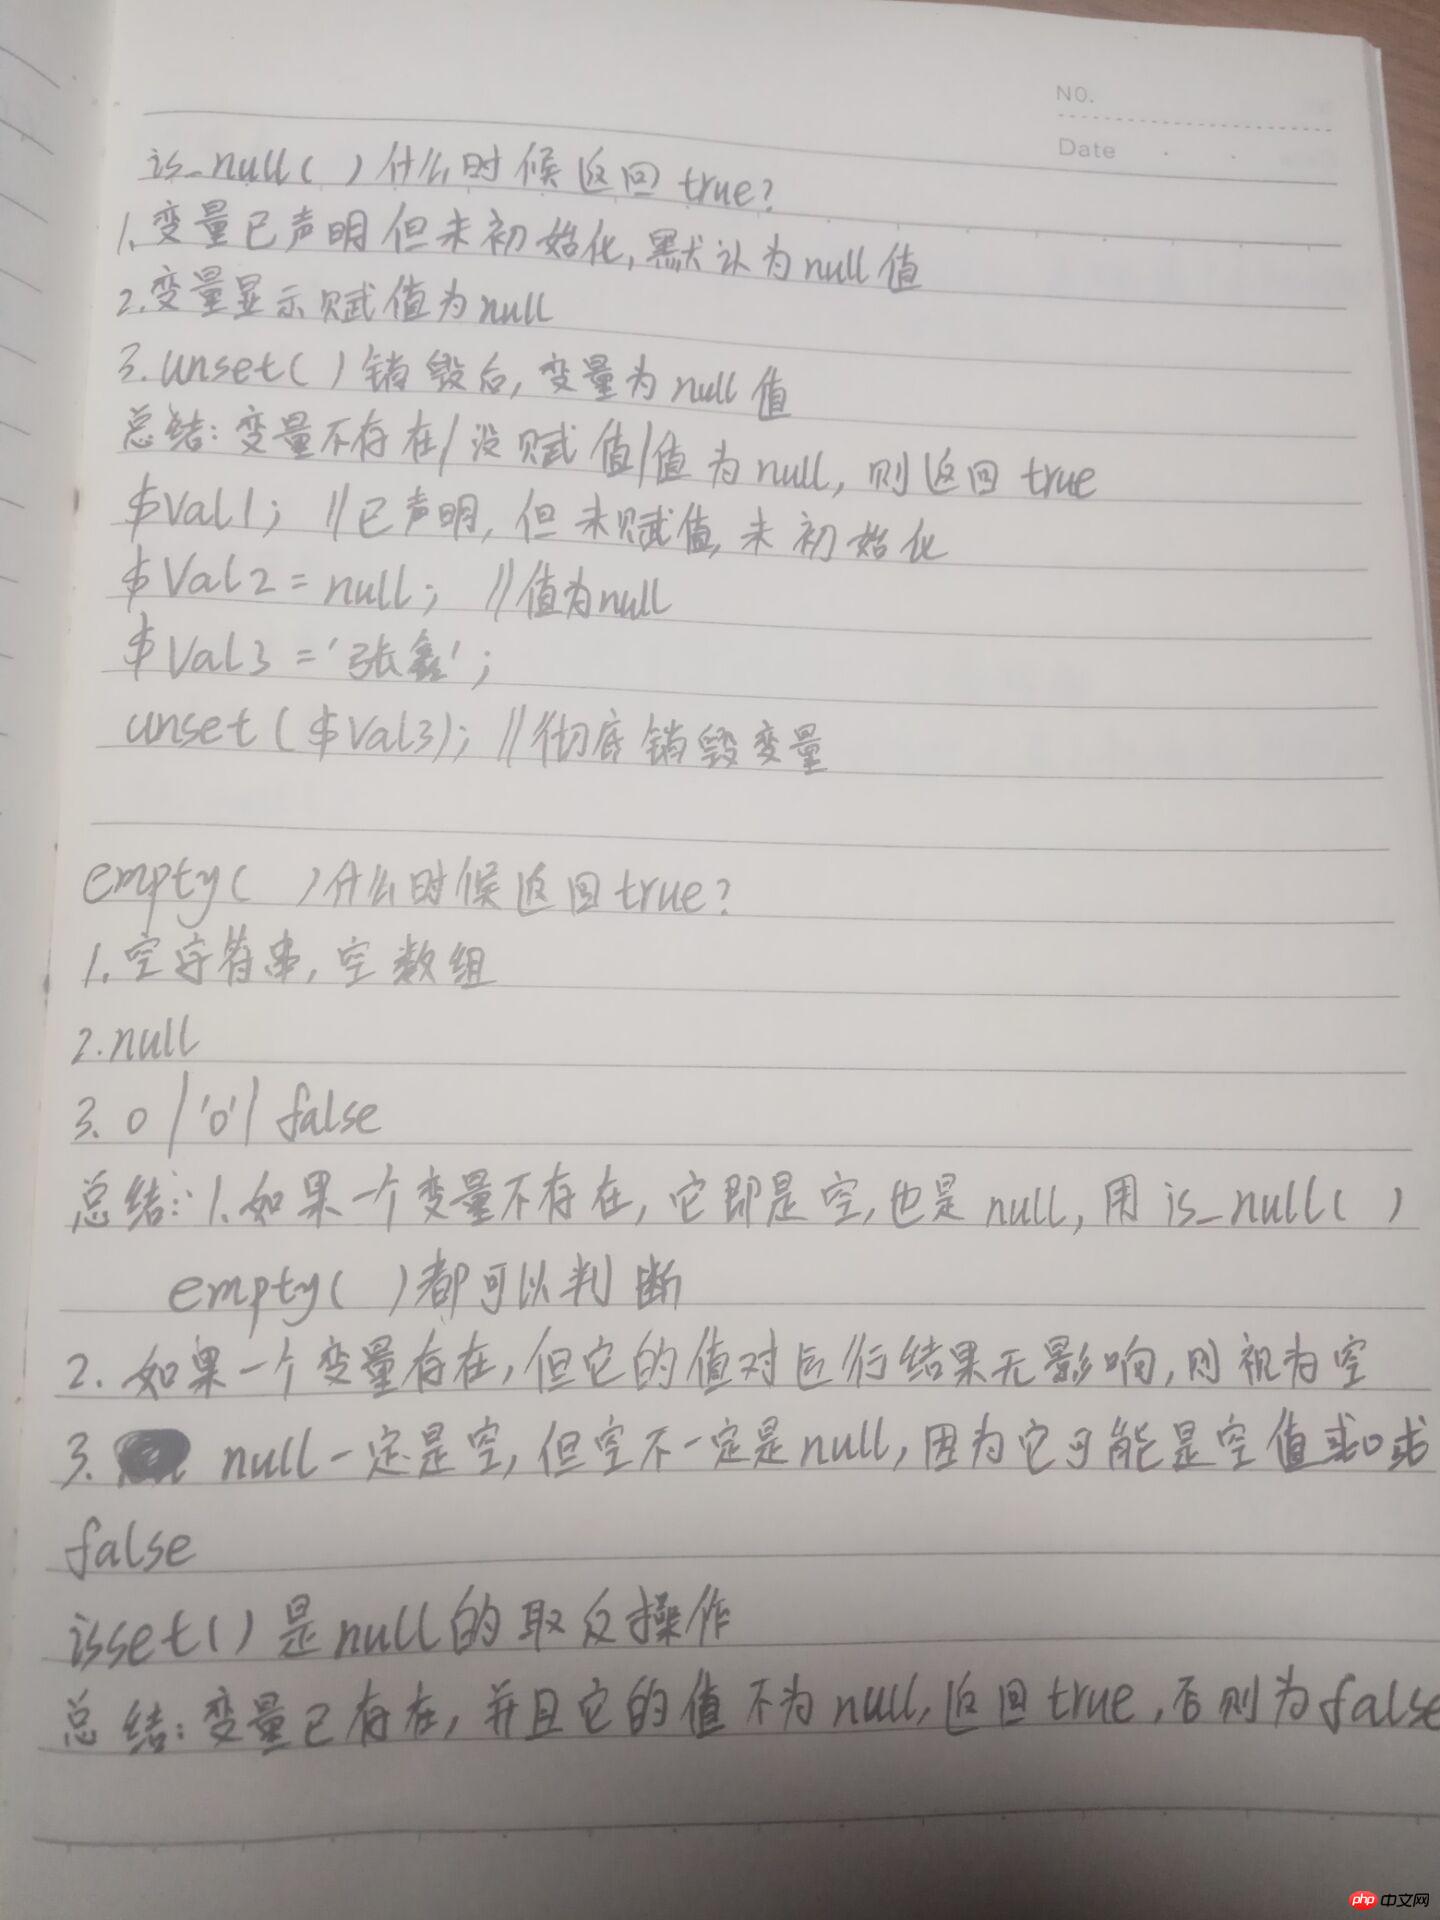 NO.
Date
is_null( )什么时候返回true?
1.变量已声明但未初始化,默认为null值
2.变量显示赋值为null
3.unset( )销毁后,变量为null值
总结:变量不存在/没赋值/值为null,则返回true
$Val1; //已声明,但未赋值,未初始化
$Val2=null; //值为null
$Val3='张鑫';
unset($Val3); //彻底销毁变量
empty( )什么时候返回true?
1.空字符串,空数组
2.null
3. 0/'0'/false
总结:1.如果一个变量不存在,它即是空,也是null,用is_null( )
empty( )都可以判断
2.如果一个变量存在,但它的值对运行结果无影响,则视为空
3. null一定是空,但空不一定是null,因为它可能是空值或0或
false
isset()是null的取反操作
总结:变量已存在,并且它的值不为null,返回true,否则为false
php 中文网